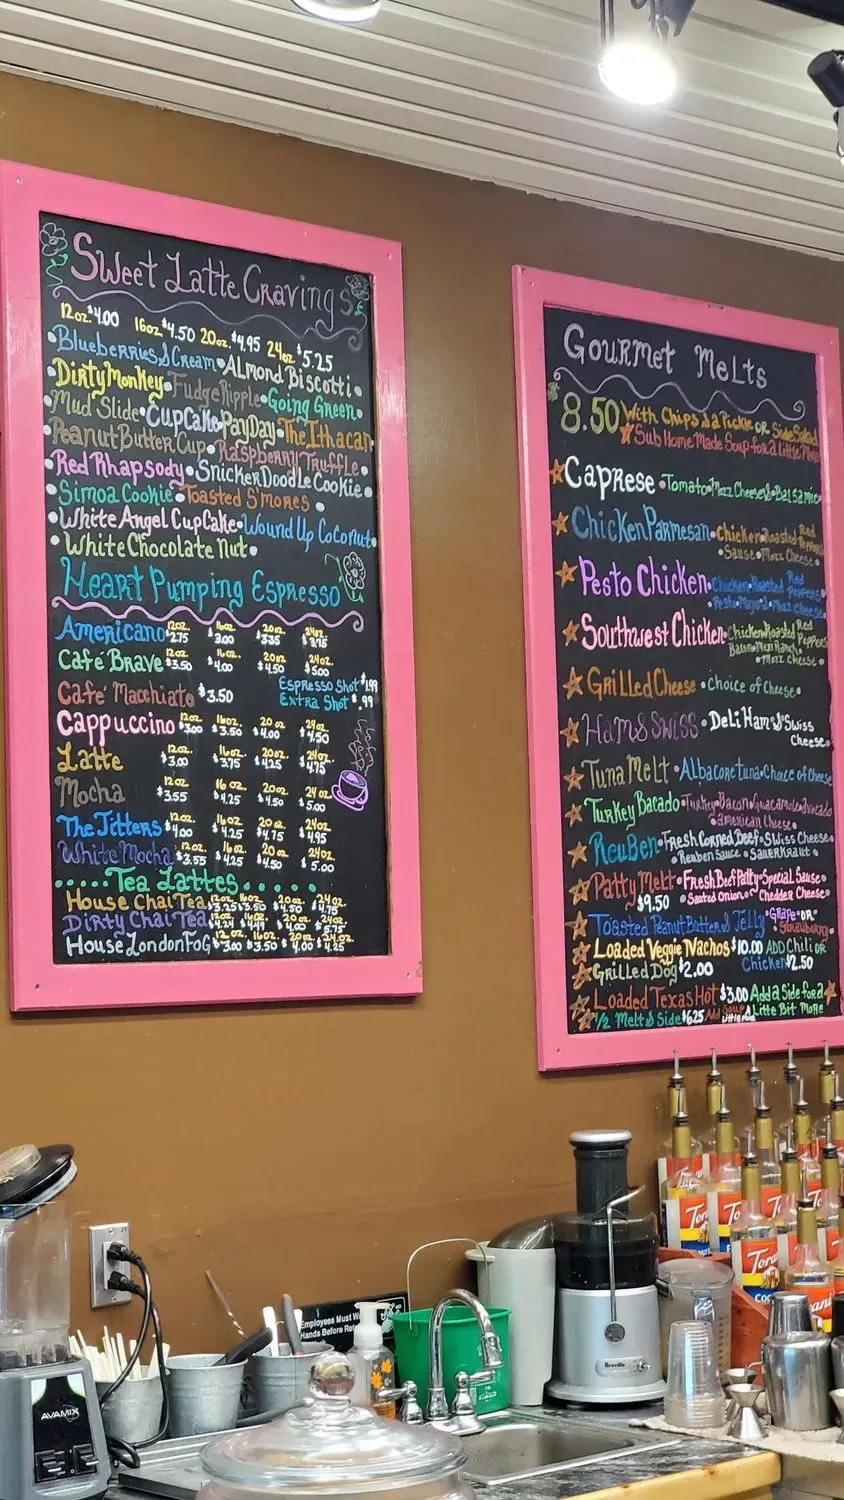 Sweet Latte Cravings
12oz. $4.00 16oz $4.50 20oz $4.95 24oz $5.25
•Blueberries & Cream•Almond Biscotti•
Dirty Monkey•Fudge Ripple•Going Green•
Mud Slide•CupCake•PayDay•The Ithacan
Peanut Butter Cup•Raspberry Truffle•
Red Rhapsody•SnickerDoodle Cookie•
•Simoa Cookie•Toasted S'mores•
•White Angel CupCake•Wound Up Coconut•
•White Chocolate Nut•
Heart Pumping Espresso
Americano 12oz. $2.75 16oz. $3.00 20oz. $3.35 24oz. $3.75
Café Brave 12oz. $3.50 16oz. $4.00 20oz $4.50 24oz. $5.00
Café Macchiato $3.50 Espresso Shot $1.99
Extra Shot $.99
Cappuccino 12oz. $3.00 16oz. $3.50 20oz $4.00 24oz. $4.50
Latte 12oz. $3.00 16oz. $3.75 20oz. $4.25 24oz. $4.75
Mocha 12oz. $3.55 16oz. $4.25 20oz. $4.50 24oz $5.00
The Jitters 12oz. $4.00 16oz. $4.25 20oz. $4.75 24oz. $4.95
White Mocha 12oz. $3.55 16oz. $4.25 20oz. $4.50 24oz. $5.00
Tea Lattes
House Chai Tea 12oz. $3.25 16oz. $3.50 20oz. $4.50 24oz. $4.75
Dirty Chai Tea 12oz. $4.24 16oz. $4.49 20oz. $4.00 24oz. $5.75
House London Fog 12oz. $3.00 16oz. $3.50 20oz. $4.00 24oz. $4.25
Gourmet Melts
8.50 With Chips & a Pickle or Side Salad
Sub Home Made Soup for a Little More
Caprese •Tomato•Mozz Cheese&•Balsamic•
Chicken Parmesan•Chicken•Roasted Red Peppers
•Sause•Mozz Cheese•
Pesto Chicken•Chicken•Roasted Red Peppers•
Pesto•Mayo•&•Mozz Cheese
Southwest Chicken•Chicken Roasted Red Peppers
•Mozz Cheese•
Grilled Cheese •Choice of Cheese•
Ham & Swiss •Deli Ham & Swiss
Cheese•
Tuna Melt •Albacore tuna•Choice of Cheese
Turkey Bacado•Turkey•Bacon•Guacamole•Avocado
•american Cheese•
Reuben•Fresh Corned Beef•Swiss Cheese•
•Reuben Sauce •Sauerkraut•
Patty Melt•Fresh Beef Patty•Special Sause•
$9.50 •Sauted Onion•Chedder Cheese•
Toasted Peanut Butter & Jelly •Grape•or•
•Strawberry•
Loaded Veggie Nachos $10.00 ADD Chili or
Grilled Dog $2.00 Chicken $2.50
Loaded Texas Hot $3.00 Add a Side for a
1/2 Melt & Side $6.25 Add Soup Little Bit More
Employees Must W
Hands Before Re
AVAMIX
Breville
Tor
Tor
Tora
Co